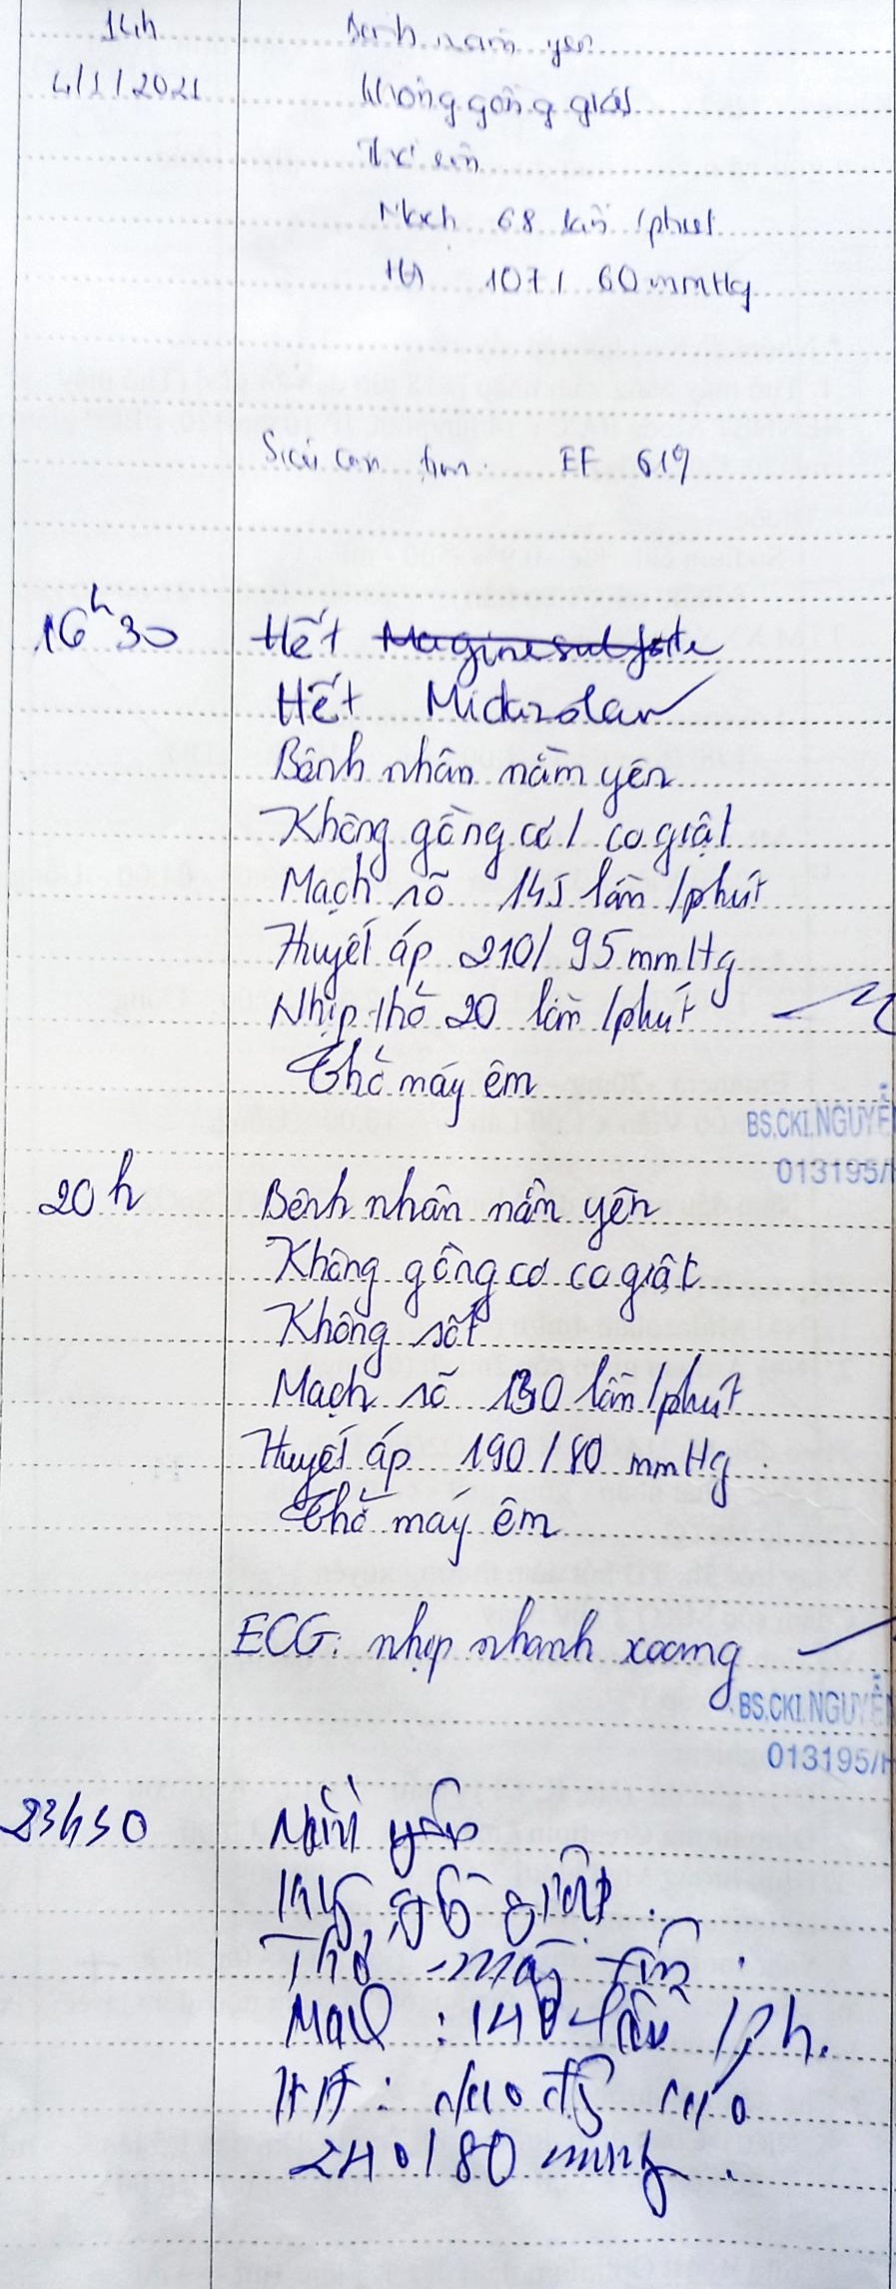 14h
4/1/2021
nằm yên
không gồng giật
Thở êm
Mạch 68 lần /phút
HA 107/ 60 mmHg
Siêu âm tim: EF 61%
16h30
Hết Maginesulfate
Hết Midazolam
Bệnh nhân nằm yên
Không gồng cơ / co giật
Mạch rõ 145 lần /phút
Huyết áp 210/ 95 mmHg
Nhịp thở 20 lần /phút
Thở máy êm
BS.CKI.NGUYỄ
013195/
20h
Bệnh nhân nằm yên
Không gồng cơ co giật
Không sốt
Mạch rõ 130 lần /phút
Huyết áp 190 / 80 mmHg
Thở máy êm
ECG: nhịp nhanh xoang
BS.CKI.NGUYỄN
013195/H
23h30
Nằm yên
giật.
Thở máy êm.
Mạch : 140 lần /ph.
HA : dao động cao
240/ 80 mmHg.